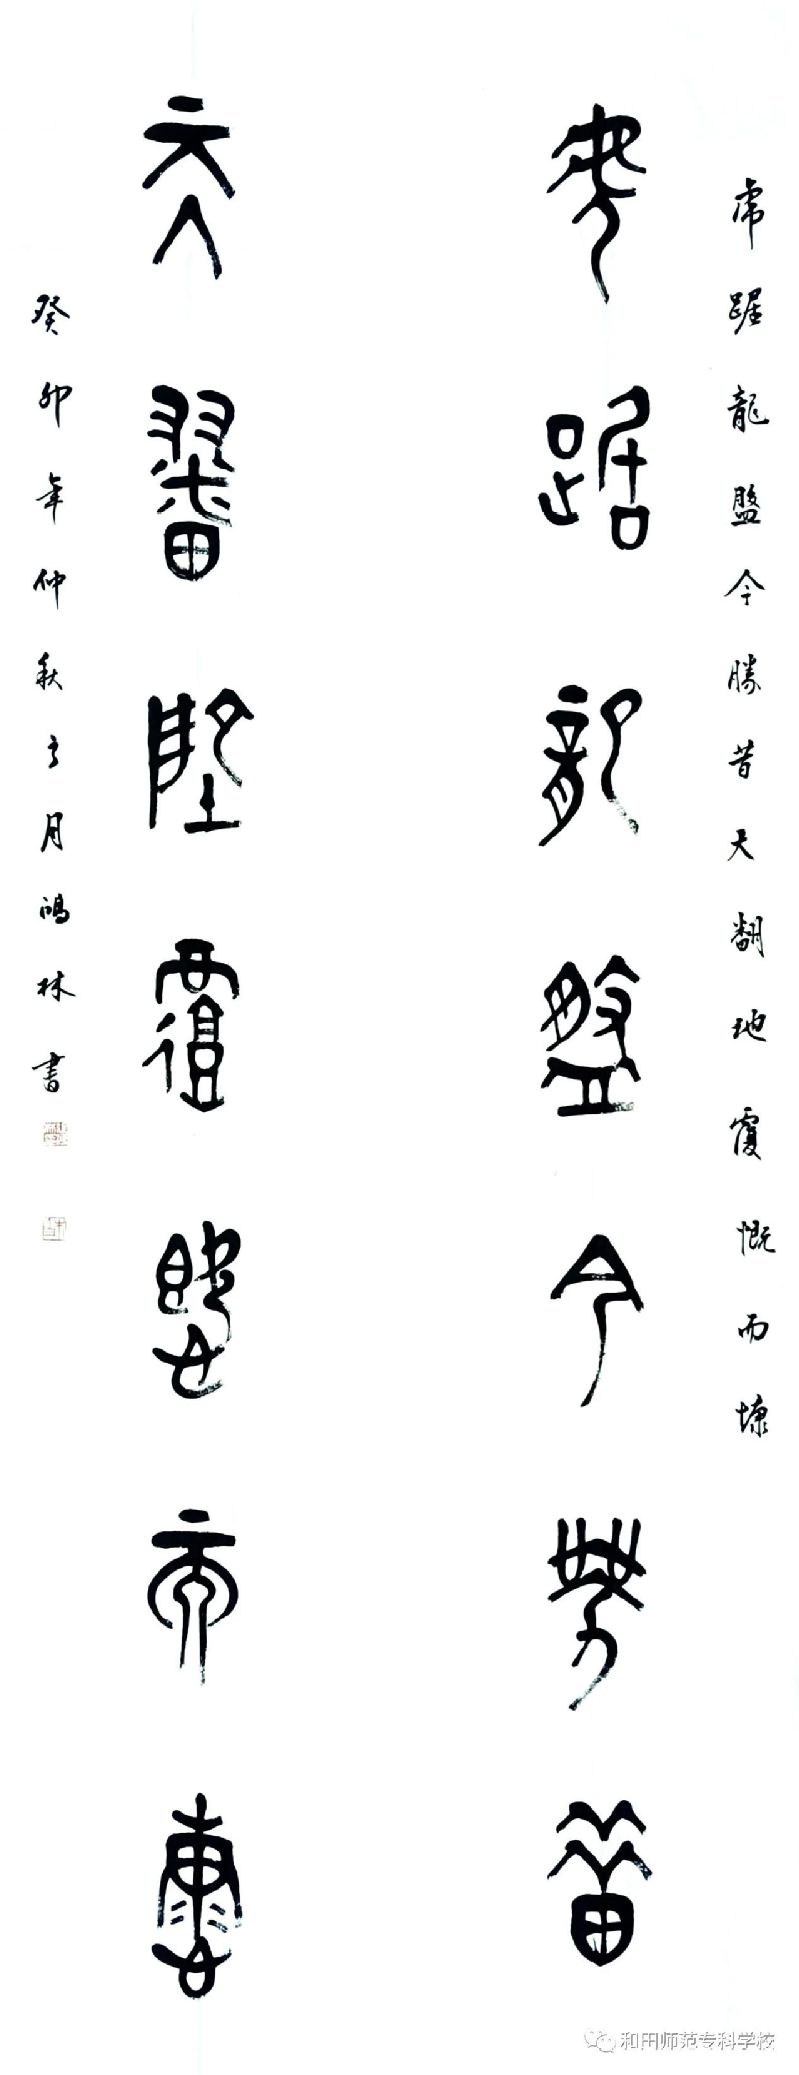 虎踞龍盤今勝昔天翻地覆慨而慷
虎踞龍盤今勝昔
天翻地覆慨而慷
癸卯年仲秋之月鴻林書
和田师范专科学校